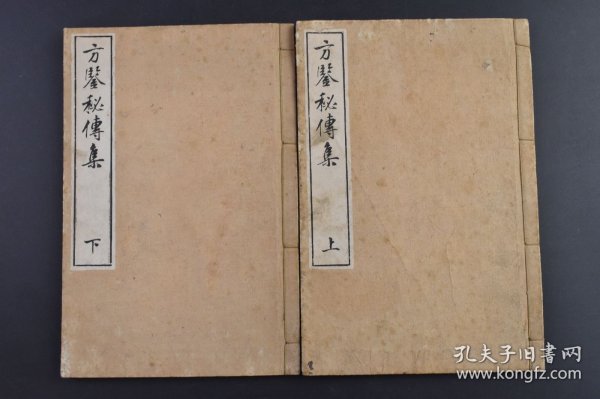 方鑒秘傳集
上
方鑒秘傳集
下
孔夫子旧書网
www.kongfz.com